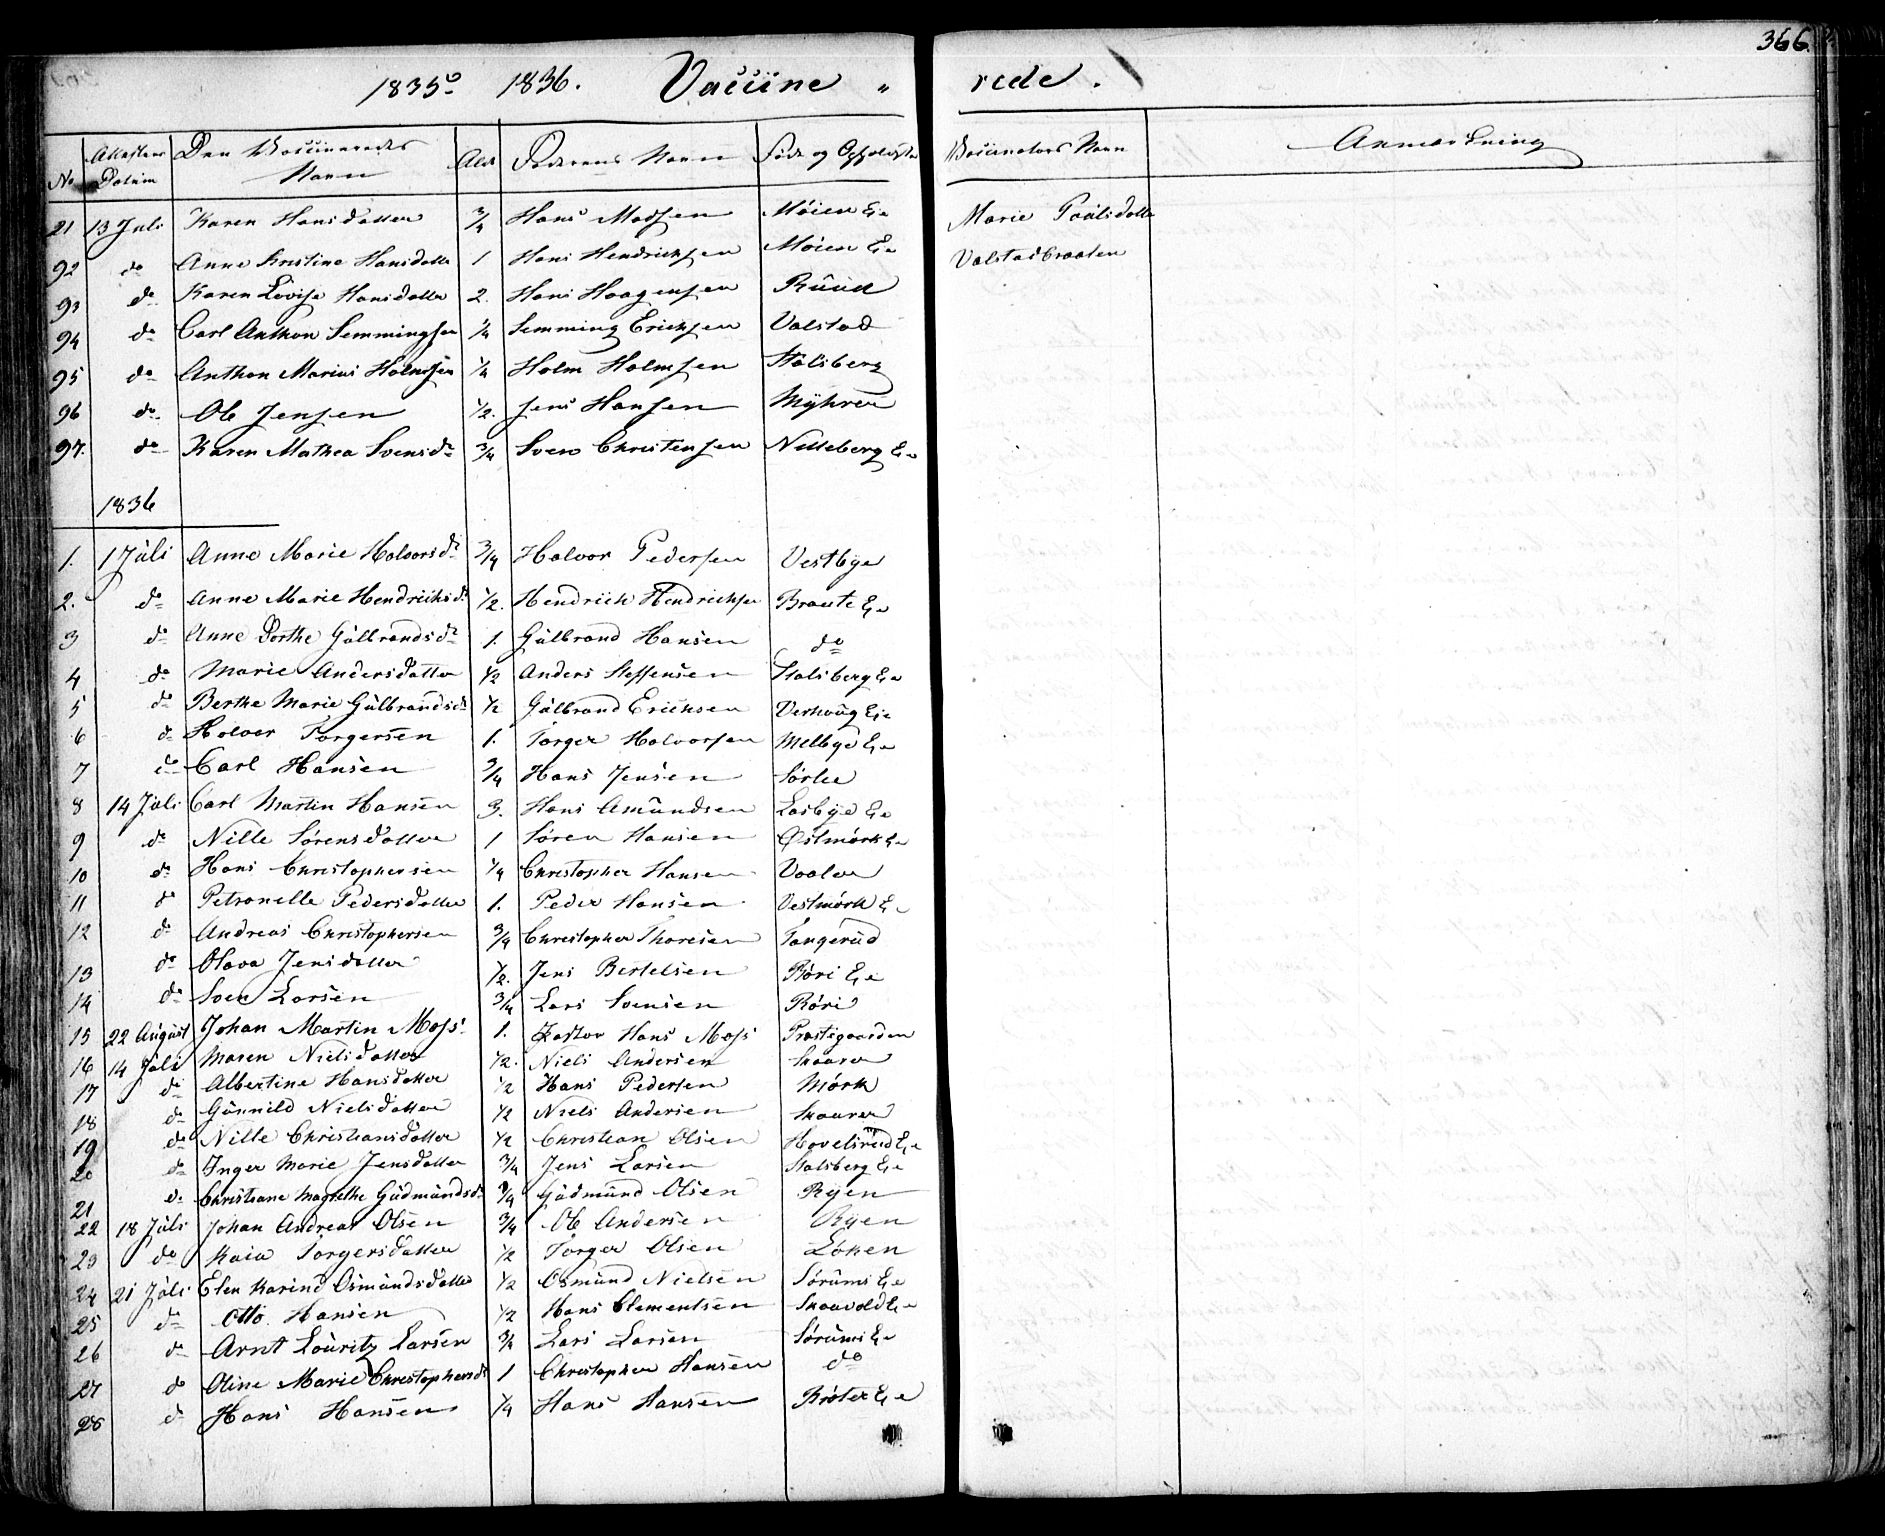 366.
1835 og 1836. Vaccine " rede.
No Attestens Datum Den Vaccineredes Navn Ald Faderens Navn Føde og Opholdsste Vaccinateurs Navn Anmærkning
21 13 Juli Karen Hansdatter 3/4 Hans Madsen Møien Eie Marie Paalsdatte
92 do Anne Kristine Hansdatte 1 Hans Hendrichsen Møien Eie Valstadbraaten
93 do Karen Lovise Hansdatte 2. Hans Haagensen Ruud
94 do Carl Anthon Semmingsen 1/4 Semming Erichsen Valstad
95 do Anthon Marius Holmsen 1/4 Holm Holmsen Stalsberg
96 do Ole Jensen 1/2. Jens Hansen Myhrer
97. do Karen Mathea Svensdr 3/4 Svend Christensen Nilleberg Eie
1836
1. 1 Juli Anne Marie Halvorsdr 3/4 Halvor Pedersen Vestbye
2. do Anne Marie Hendrichsdr 1/2. Hendrich Hendrichsen Braate Eie
3 do Anne Dorthe Gulbrandsdr 1. Gulbrand Hansen do
4 do Marie Andersdatter 1/2 Anders Steffensen Stalsberg Eie
5 do Berthe Marie Gulbrandsdr 1/2 Gulbrand Erichsen Verhaug Eie
6 do Halvor Torgersen 1. Torger Halvorsen Melbye Eie
7 do Carl Hansen 3/4 Hans Jensen Sørlie
8 14 Juli Carl Martin Hansen 3. Hans Amundsen Lasbye Eie
9 do Nille Sørensdatter 1 Søren Hansen Østmørk Eie
10 do Hans Christophersen 1/4 Christopher Hansen Vaaler
11 do Petronelle Pedersdatter 1. Peder Hansen Vestmørk Eie
12 do Andreas Christophersen 3/4 Christopher Thoresen Tangerud
13 do Olava Jensdatter 1/2. Jens Bertelsen Røri Eie
14 do Sven Larsen 3/4 Lars Svensen Røri
15 22 August Johan Martin Moss 1. Pastor Hans Moss Præstegaarden
16 14 Juli Maren Nielsdatter 1/2. Niels Andersen Skaarer
17 do Albertine Hansdatter 1/2 Hans Pedersen Mørk
18 do Gunnild Nielsdatter 1/2 Niels Andersen Skaarer
19 do Nille Christiansdatter 1/2 Christian Olsen Hovelsrud Eie
20 do Inger Marie Jensdatter 3/4 Jens Larsen Stalsberg Eie
21 do Christiane Magrethe Gudmundsdr 3/4 Gudmund Olsen Ryen
22 18 Juli Johan Andreas Olsen 3/4 Ole Andersen Ryen
23 do Kaia Torgersdatter 1/2 Torger Olsen Løken
24 21 Juli Elen Karine Osmundsdatter 1/2 Osmund Nielsen Sørums Eie
25 do Otto Hansen 1/2 Hans Clementsen Skaavold Eie
26 do Arnt Louritz Larsen 3/4 Lars Larsen Sørums Eie
27 do Oline Marie Christophersdr 1 Christopher Hansen do
28 do Hans Hansen 1/4 Hans Hansen Brøter Eie